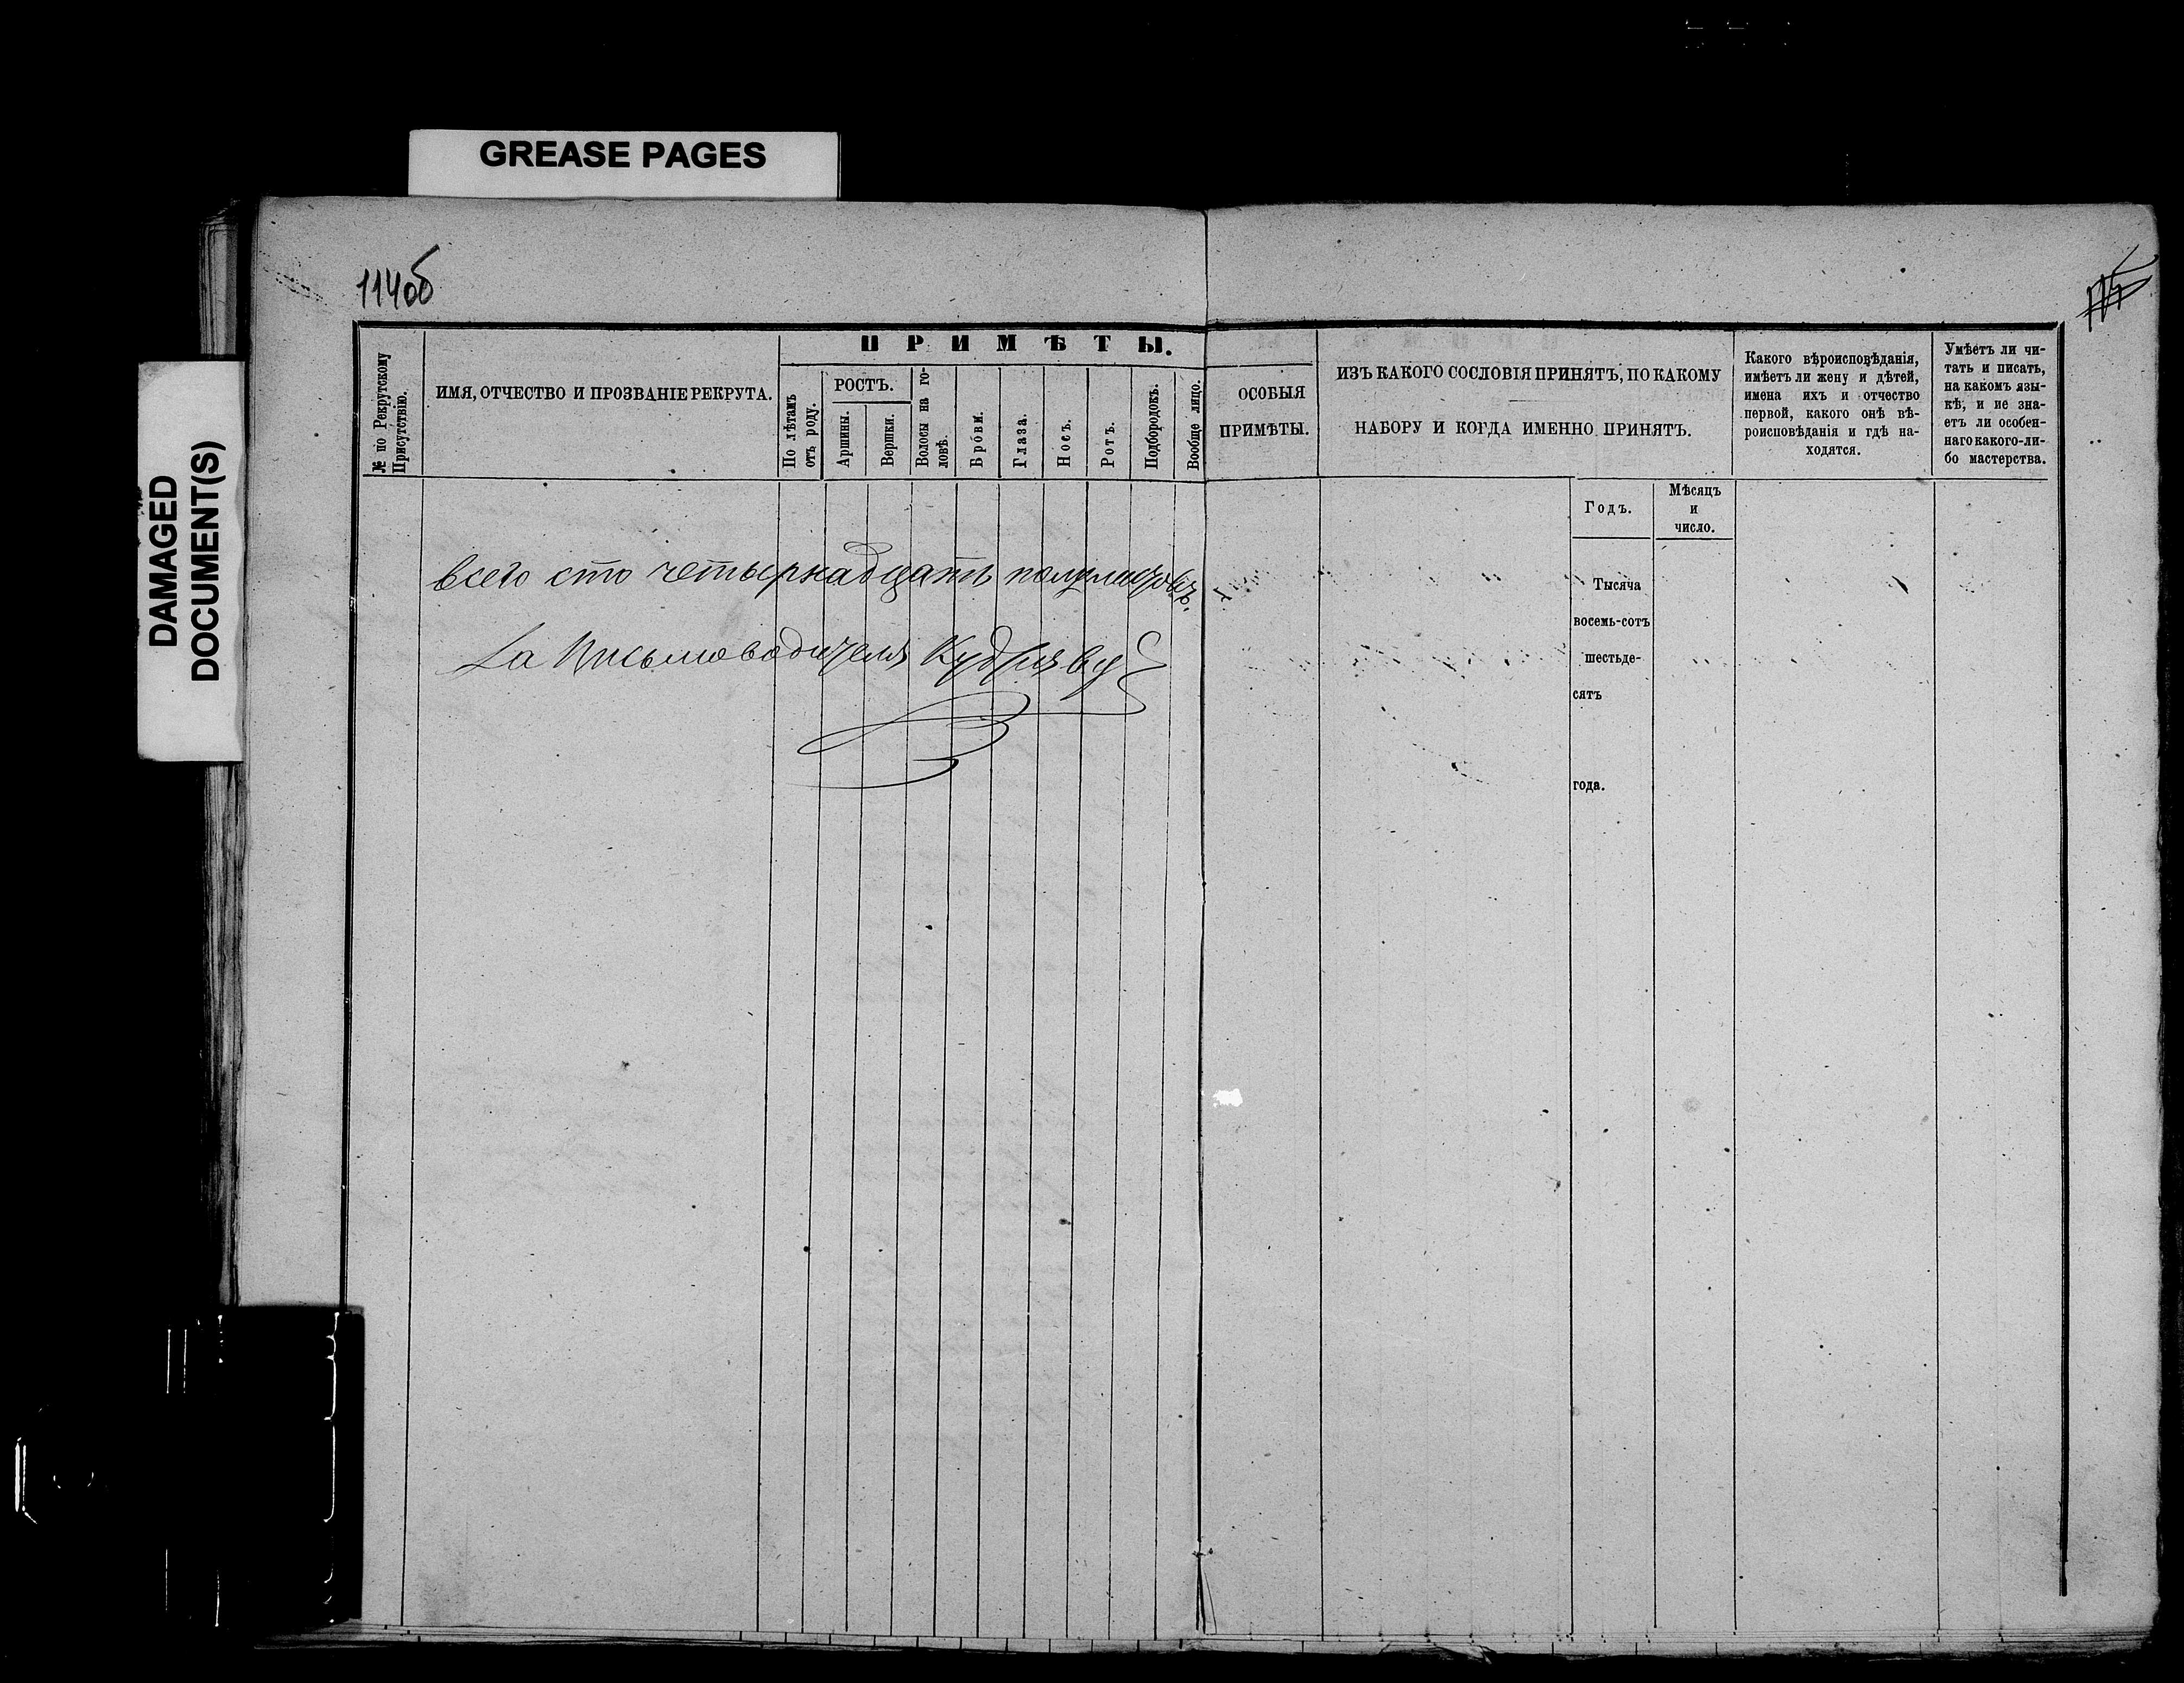 GREASE PAGES
DAMAGED
DOCUMENT(S)
114об
№ по Рекрутскому
Присутствію.
ИМЯ, ОТЧЕСТВО И ПРОЗВАНІЕ РЕКРУТА.
ПРИМѢТЫ.
По лѣтамъ
отъ роду.
РОСТЪ.
Аршины.
Вершки.
Волосы на го-
ловѣ.
Брови.
Глаза.
Носъ.
Ротъ.
Подбородокъ.
Вообще лицо.
ОСОБЫЯ
ПРИМѢТЫ.
ИЗЪ КАКОГО СОСЛОВІЯ ПРИНЯТЪ, ПО КАКОМУ
НАБОРУ И КОГДА ИМЕННО ПРИНЯТЪ.
Какого вѣроисповѣданія,
имѣетъ ли жену и дѣтей,
имена ихъ и отчество
первой, какого онѣ вѣ-
роисповѣданія и гдѣ на-
ходятся.
Умѣетъ ли чи-
тать и писать,
на какомъ язы-
кѣ, и не зна-
етъ ли особен-
наго какого-ли-
бо мастерства.
Годъ.
Мѣсяцъ
и
число.
Тысяча
восемь-сотъ
шестьде-
сятъ
года.
всего сто четырнадцать полулистовъ.
За Письмоводителя